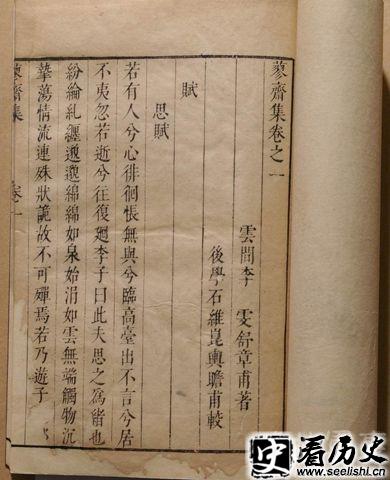 蓼齋集卷之一
雲間李 雯舒章甫著
後學石維崑輿瞻甫較
賦
思賦
若有人兮心徘徊悵無與兮臨高臺出不言兮居
不夷忽若逝兮往復廻李子曰此夫思之為緒也
紛綸糺纏邈邈綿綿如泉始涓如雲無端觸物沉
摯蕩情流連殊狀詭故不可殫焉若乃遊子
蓼齋集 卷一
史看历史
www.seelishi.cn